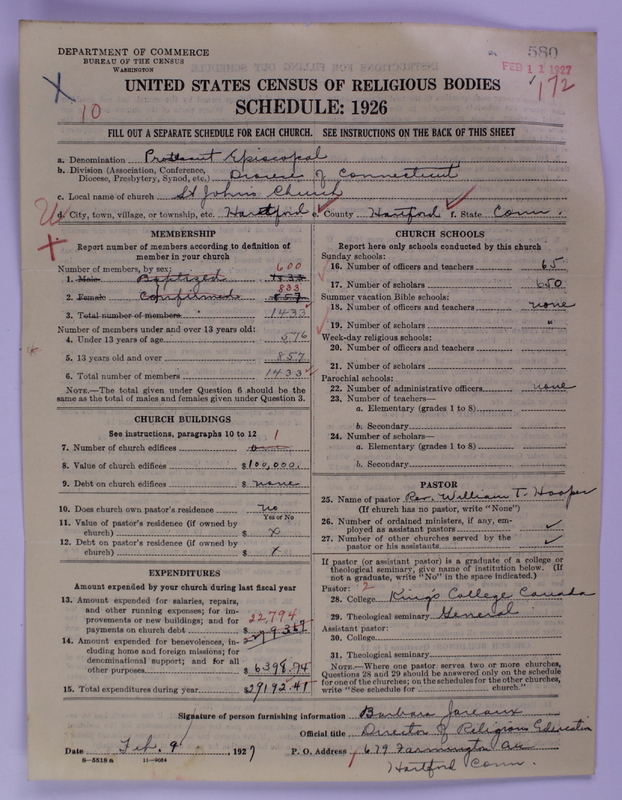 DEPARTMENT OF COMMERCE
BUREAU OF THE CENSUS
WASHINGTON
580
FEB 11 1927
172
X
10
UNITED STATES CENSUS OF RELIGIOUS BODIES
SCHEDULE: 1926
FILL OUT A SEPARATE SCHEDULE FOR EACH CHURCH. SEE INSTRUCTIONS ON THE BACK OF THIS SHEET
a. Denomination Protestant Episcopal
b. Division (Association, Conference, Diocese, Presbytery, Synod, etc.) Diocese of Connecticut
c. Local name of church St Johns Church
d. City, town, village, or township, etc. Hartford e. County Hartford f. State Conn.
MEMBERSHIP
Report number of members according to definition of
member in your church
Number of members, by sex:
1. Male Baptized 600
2. Female Confirmed 833 857
3. Total number of members 1433
Number of members under and over 13 years old:
4. Under 13 years of age 576
5. 13 years old and over 857
6. Total number of members 1433
NOTE.—The total given under Question 6 should be the
same as the total of males and females given under Question 3.
CHURCH BUILDINGS
See instructions, paragraphs 10 to 12
7. Number of church edifices 1
8. Value of church edifices $100,000.
9. Debt on church edifices $ none
10. Does church own pastor's residence no
Yes or No
11. Value of pastor's residence (if owned by
church) $ x
12. Debt on pastor's residence (if owned by
church) $ x
EXPENDITURES
Amount expended by your church during last fiscal year
13. Amount expended for salaries, repairs,
and other running expenses; for im-
provements or new buildings; and for
payments on church debt $ 22,794
14. Amount expended for benevolences, in-
cluding home and foreign missions; for
denominational support; and for all
other purposes $ 6398.94
15. Total expenditures during year $29192.41
CHURCH SCHOOLS
Report here only schools conducted by this church
Sunday schools:
16. Number of officers and teachers 65
17. Number of scholars 650
Summer vacation Bible schools:
18. Number of officers and teachers none
19. Number of scholars "
Week-day religious schools:
20. Number of officers and teachers
21. Number of scholars
Parochial schools:
22. Number of administrative officers none
23. Number of teachers—
a. Elementary (grades 1 to 8)
b. Secondary
24. Number of scholars—
a. Elementary (grades 1 to 8)
b. Secondary
PASTOR
25. Name of pastor Rev. William T. Hooper
(If church has no pastor, write "None")
26. Number of ordained ministers, if any, em-
ployed as assistant pastors
27. Number of other churches served by the
pastor or his assistants
If pastor (or assistant pastor) is a graduate of a college or
theological seminary, give name of institution below. (If
not a graduate, write "No" in the space indicated.)
Pastor: 2
28. College King's College Canada
29. Theological seminary General
Assistant pastor:
30. College
31. Theological seminary
NOTE.—Where one pastor serves two or more churches,
Questions 28 and 29 should be answered only on the schedule
for one of the churches; on the schedules for the other churches,
write "See schedule for church."
Signature of person furnishing information Barbara Jareaux
Official title Director of Religious Education
Date Feb. 9, 1927 P. O. Address 679 Farmington Ave
Hartford Conn.
8—5518a 11—9084